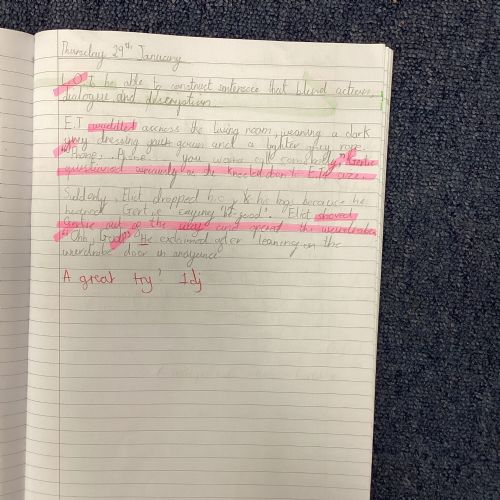 Thursday 29th January
L.O To be able to construct sentences that blend action,
dialogue and description.
E.T waddled across the living room, wearing a dark
grey dressing gown and a lighter grey rope.
"Phone, Phone... you wanna call somebody," Gertie
questioned as she kneeled down to E.T's size.
Suddenly, Eliot dropped his bag because he
heard Gertie saying 'B-good'. Eliot shoved
Gertie out of the way and opend the
"Ohh, God" He exclaimed after leaning on the
door in
A great try! 1dj